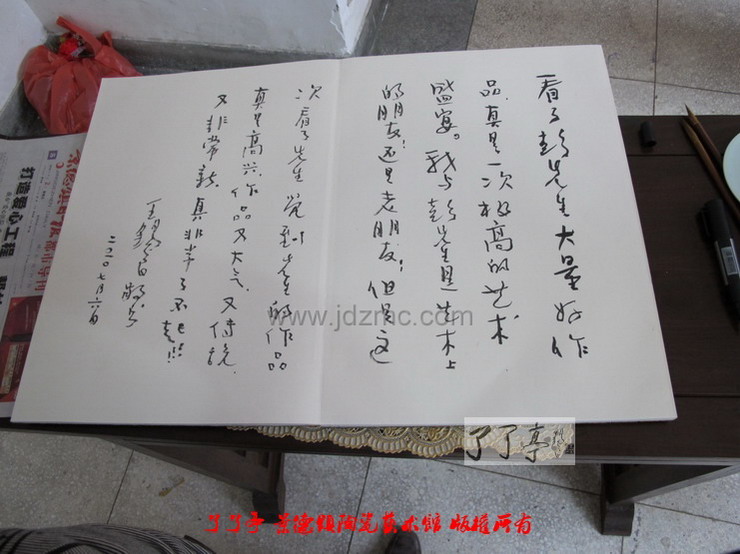 看了彭先生大量好作
品、真是一次极高的艺术
盛宴。我与彭先生是艺术上
的朋友！还是老朋友！但是这
次看了先生觉到先生的作品
真是高兴。作品又大气、又传统、
又非常新、真非常了不起！！！
二〇二〇七月六日
打造爱心工程
www.jdzmc.com
了了亭
了了亭 景德镇陶瓷艺术馆 版权所有